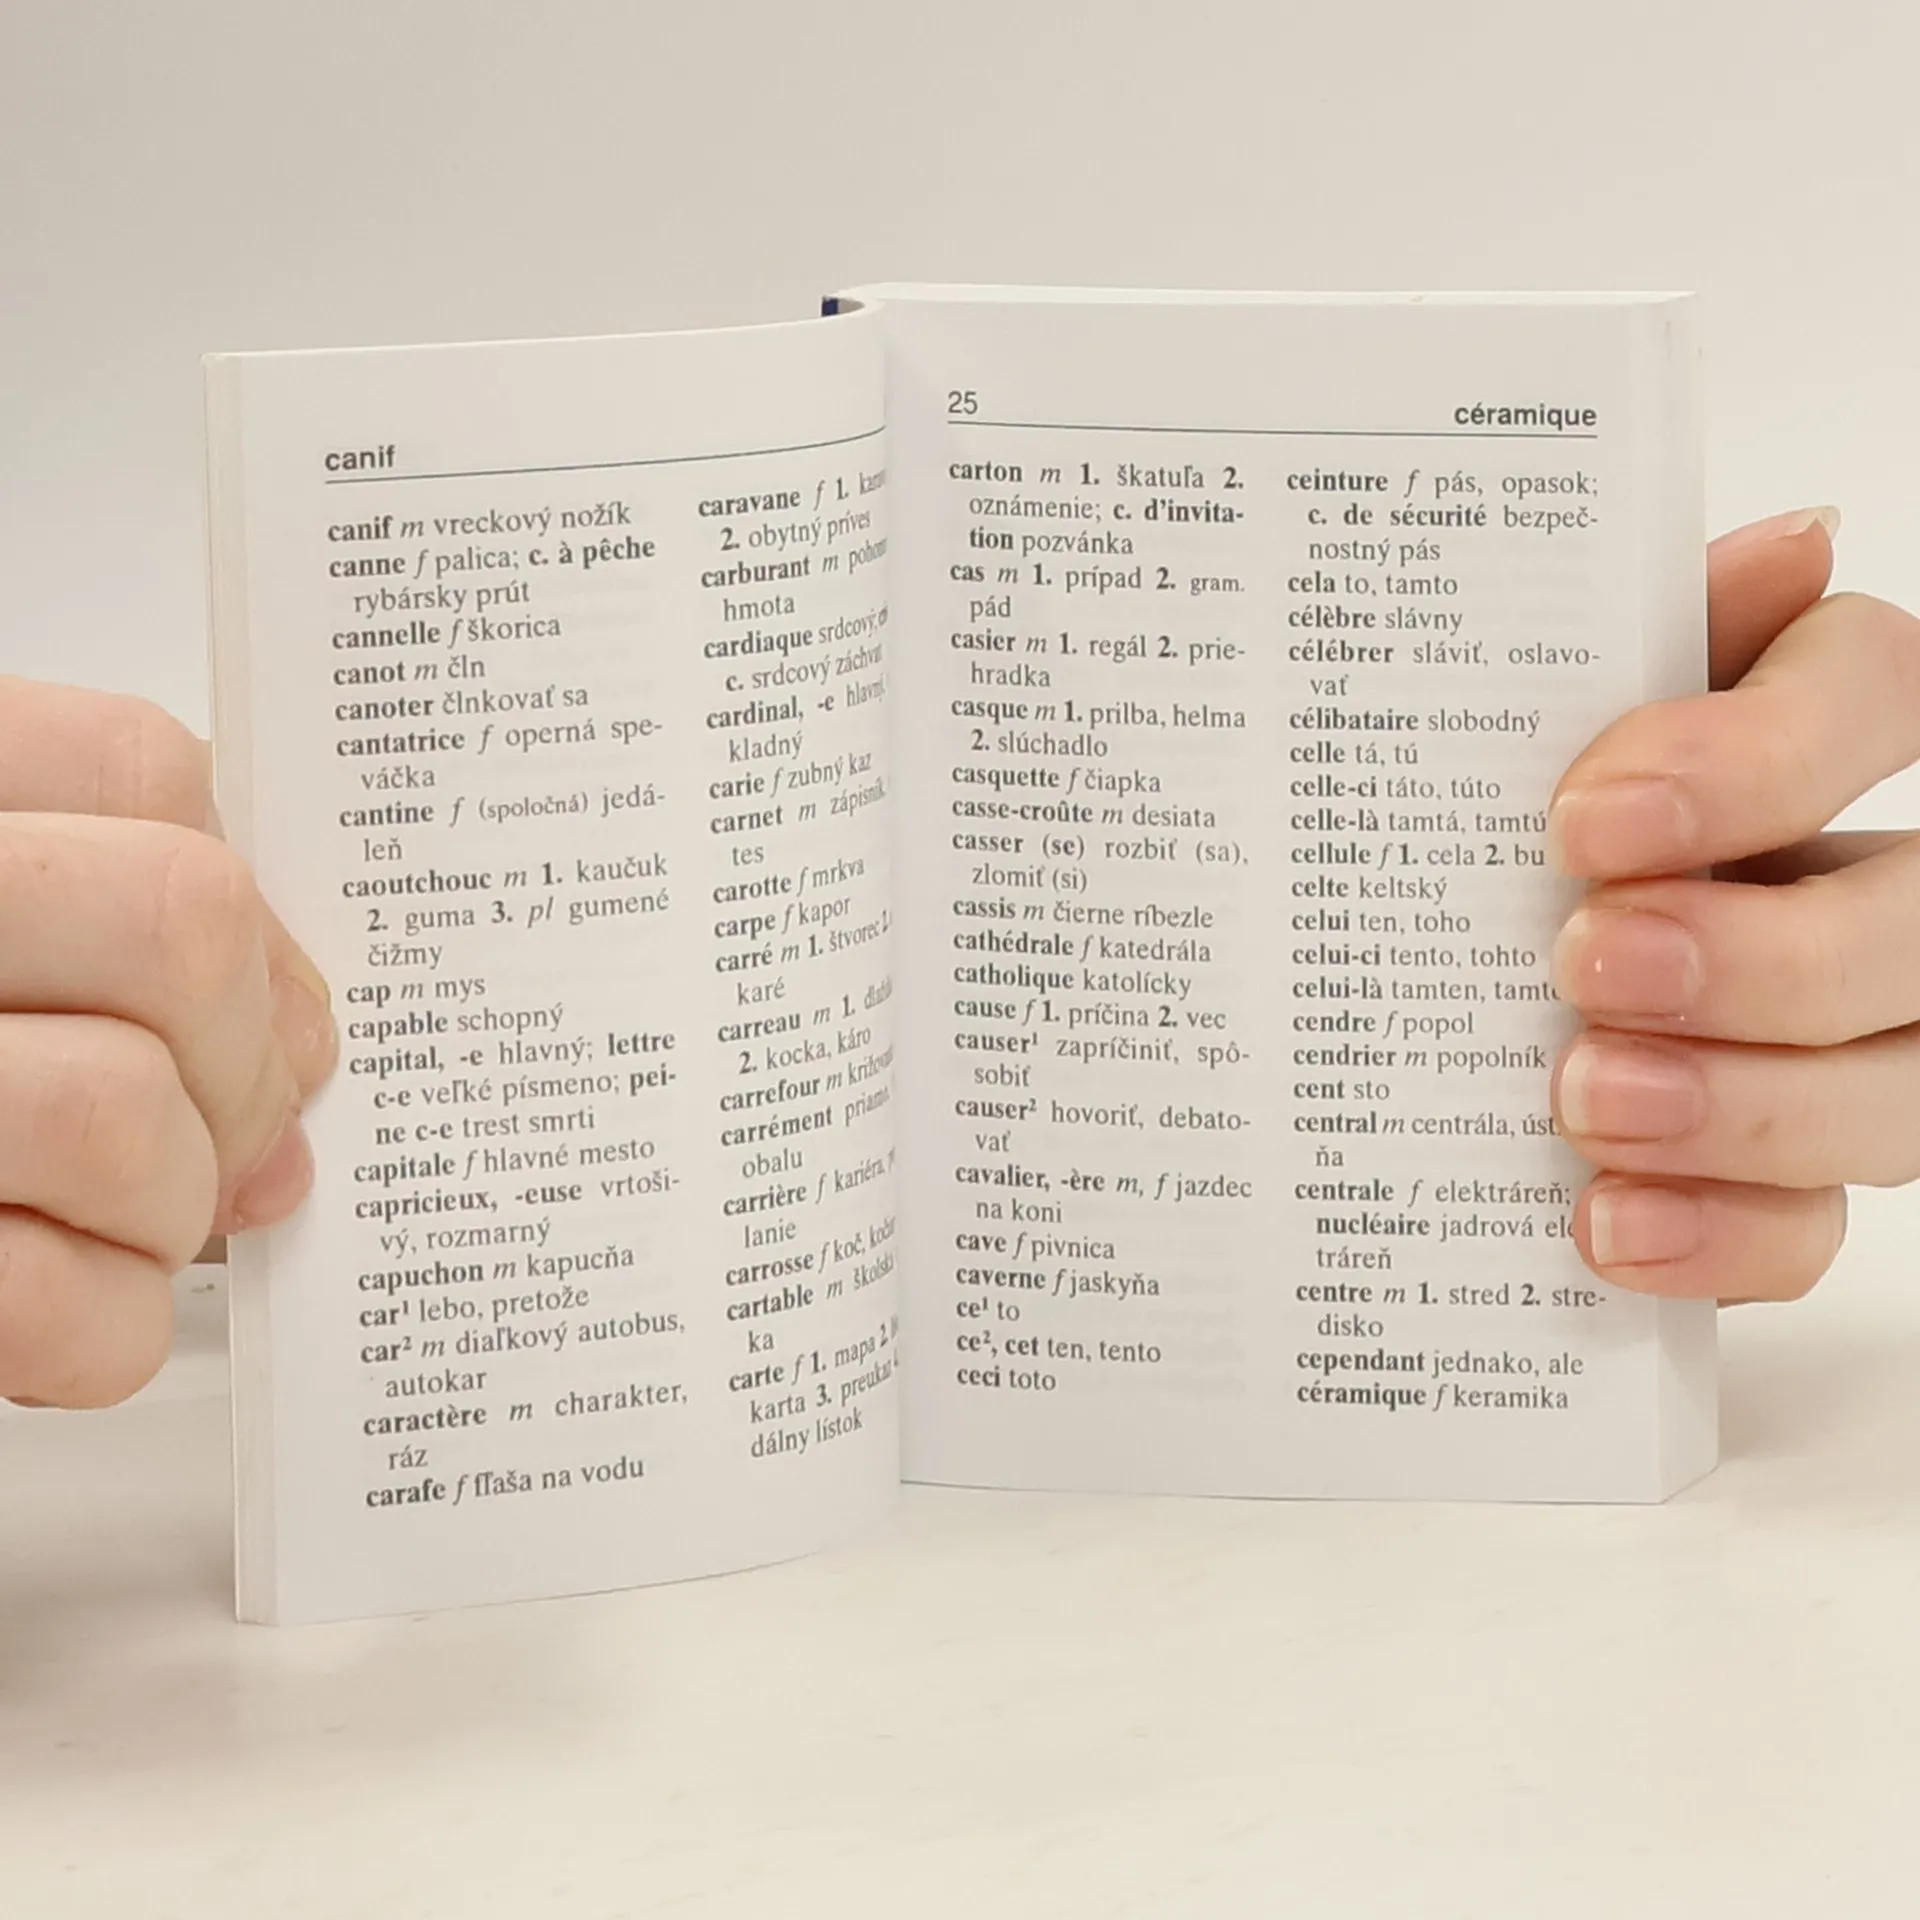 canif
canif m vreckový nožík
canne f palica; c. à pêche
rybársky prút
cannelle f škorica
canot m čln
canoter člnkovať sa
cantatrice f operná spe-
váčka
cantine f (spoločná) jedá-
leň
caoutchouc m 1. kaučuk
2. guma 3. pl gumené
čižmy
cap m mys
capable schopný
capital, -e hlavný; lettre
c-e veľké písmeno; pei-
ne c-e trest smrti
capitale f hlavné mesto
capricieux, -euse vrtoši-
vý, rozmarný
capuchon m kapucňa
car¹ lebo, pretože
car² m diaľkový autobus,
autokar
caractère m charakter,
ráz
carafe f fľaša na vodu
caravane f 1.
2. obytný príves
carburant m
hmota
cardiaque srdcový,
c. srdcový záchvat
cardinal, -e hlavný,
kladný
carie f zubný kaz
carnet m zápisník
tes
carotte f mrkva
carpe f kapor
carré m 1. štvorec 2.
karé
carreau m 1.
2. kocka, káro
carrefour m
carrément priamo,
obalu
carrière f kariéra,
lanie
carrosse f koč,
cartable m
ka
carte f 1. mapa 2.
karta 3. preukaz
dálny lístok
25
céramique
carton m 1. škatuľa 2.
oznámenie; c. d'invita-
tion pozvánka
cas m 1. prípad 2. gram.
pád
casier m 1. regál 2. prie-
hradka
casque m 1. prilba, helma
2. slúchadlo
casquette f čiapka
casse-croûte m desiata
casser (se) rozbiť (sa),
zlomiť (si)
cassis m čierne ríbezle
cathédrale f katedrála
catholique katolícky
cause f 1. príčina 2. vec
causer¹ zapríčiniť, spô-
sobiť
causer² hovoriť, debato-
vať
cavalier, -ère m, f jazdec
na koni
cave f pivnica
caverne f jaskyňa
ce¹ to
ce², cet ten, tento
ceci toto
ceinture f pás, opasok;
c. de sécurité bezpeč-
nostný pás
cela to, tamto
célèbre slávny
célébrer sláviť, oslavo-
vať
célibataire slobodný
celle tá, tú
celle-ci táto, túto
celle-là tamtá, tamtú
cellule f 1. cela 2. bu
celte keltský
celui ten, toho
celui-ci tento, tohto
celui-là tamten,
cendre f popol
cendrier m popolník
cent sto
central m centrála,
ňa
centrale f elektráreň;
nucléaire jadrová
tráreň
centre m 1. stred 2. stre-
disko
cependant jednako, ale
céramique f keramika